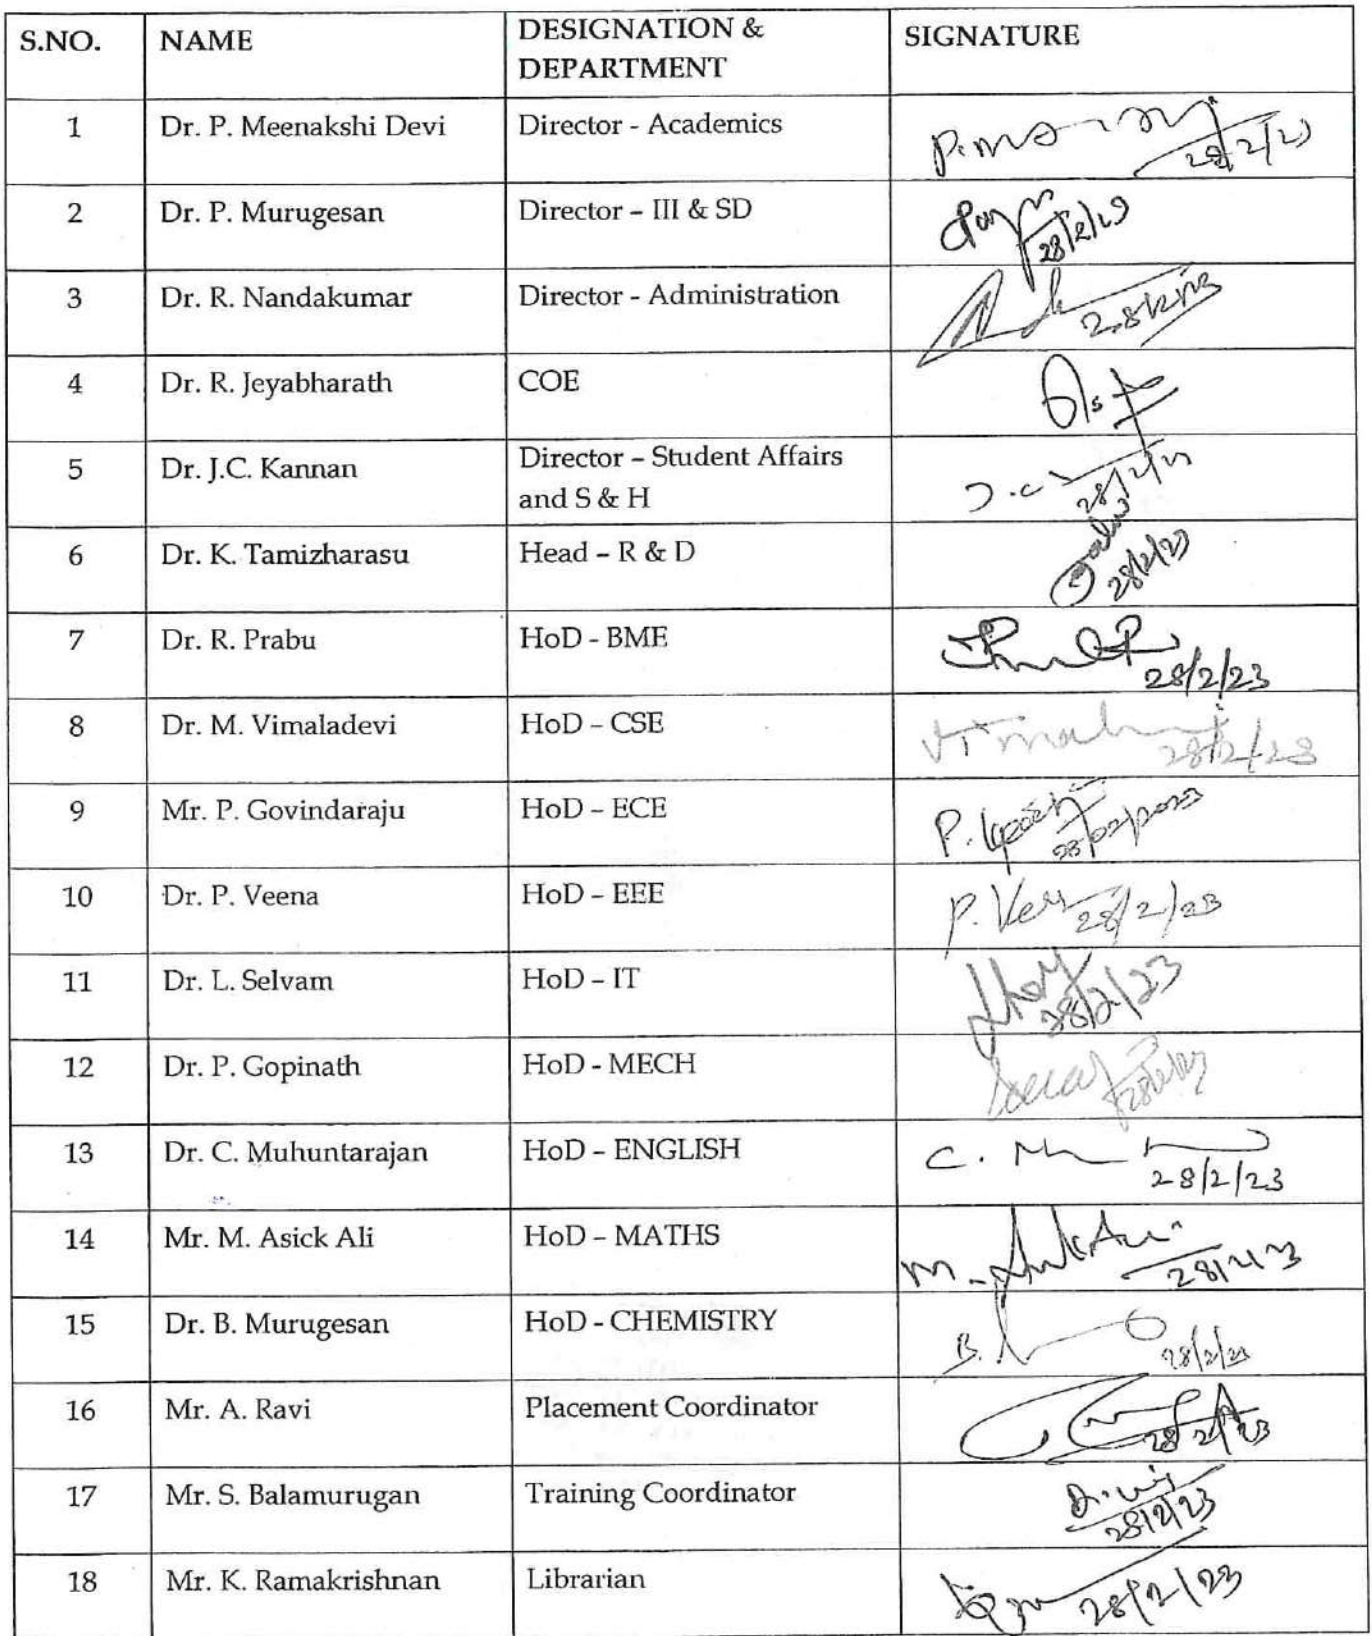 S.NO. NAME DESIGNATION & DEPARTMENT SIGNATURE
1 Dr. P. Meenakshi Devi Director - Academics 28/2/23
2 Dr. P. Murugesan Director – III & SD 28/2/23
3 Dr. R. Nandakumar Director - Administration
4 Dr. R. Jeyabharath COE
5 Dr. J.C. Kannan Director – Student Affairs and S & H
6 Dr. K. Tamizharasu Head – R & D 28/2/23
7 Dr. R. Prabu HoD - BME 28/2/23
8 Dr. M. Vimaladevi HoD – CSE 28/2/23
9 Mr. P. Govindaraju HoD – ECE
10 Dr. P. Veena HoD – EEE 28/2/23
11 Dr. L. Selvam HoD – IT 28/2/23
12 Dr. P. Gopinath HoD - MECH
13 Dr. C. Muhuntarajan HoD – ENGLISH 28/2/23
14 Mr. M. Asick Ali HoD – MATHS
15 Dr. B. Murugesan HoD - CHEMISTRY
16 Mr. A. Ravi Placement Coordinator 28/2/23
17 Mr. S. Balamurugan Training Coordinator 28/2/23
18 Mr. K. Ramakrishnan Librarian 28/2/23